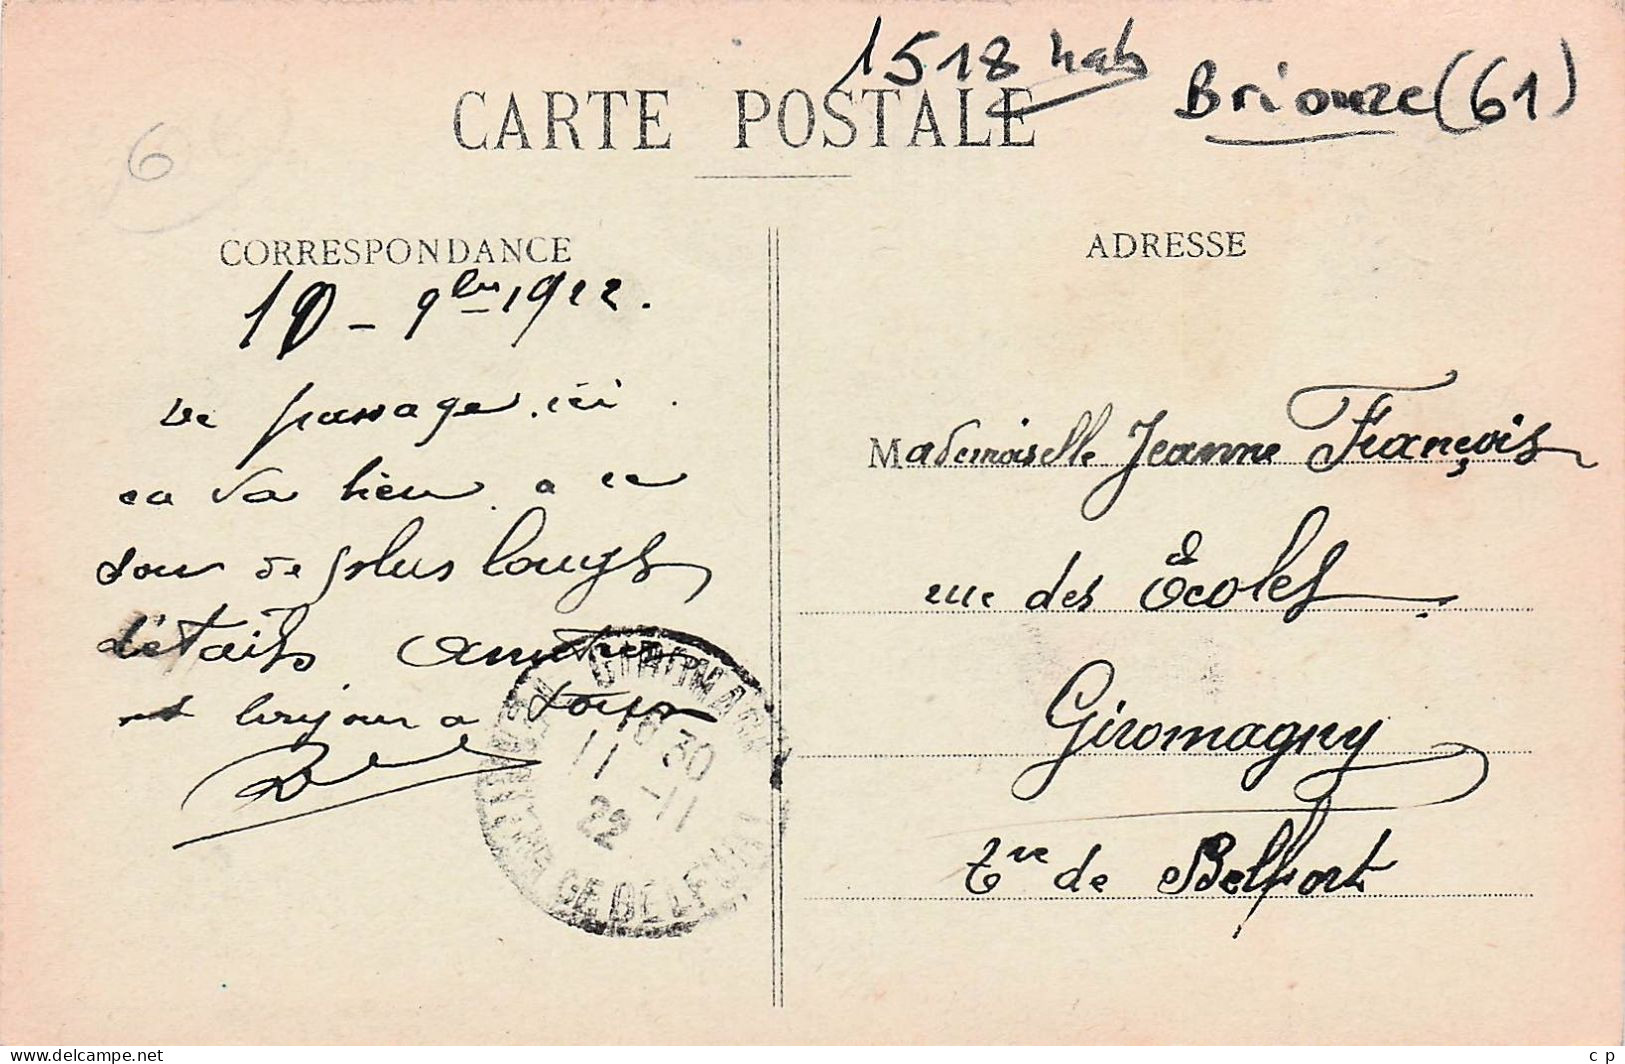 1518 hab Briouze (61)
CARTE POSTALE
6
CORRESPONDANCE
10 - 9bre 1922.
De passage ici.
ca va bien a ce
soir de plus longs
détails. Amitiés
et bonjour a tous
ADRESSE
Mademoiselle Jeanne François
rue des Écoles.
Giromagny
Tre de Belfort
GIROMAGNY
16 30
11 -11
22
DE BELFORT
www.delcampe.net
c p